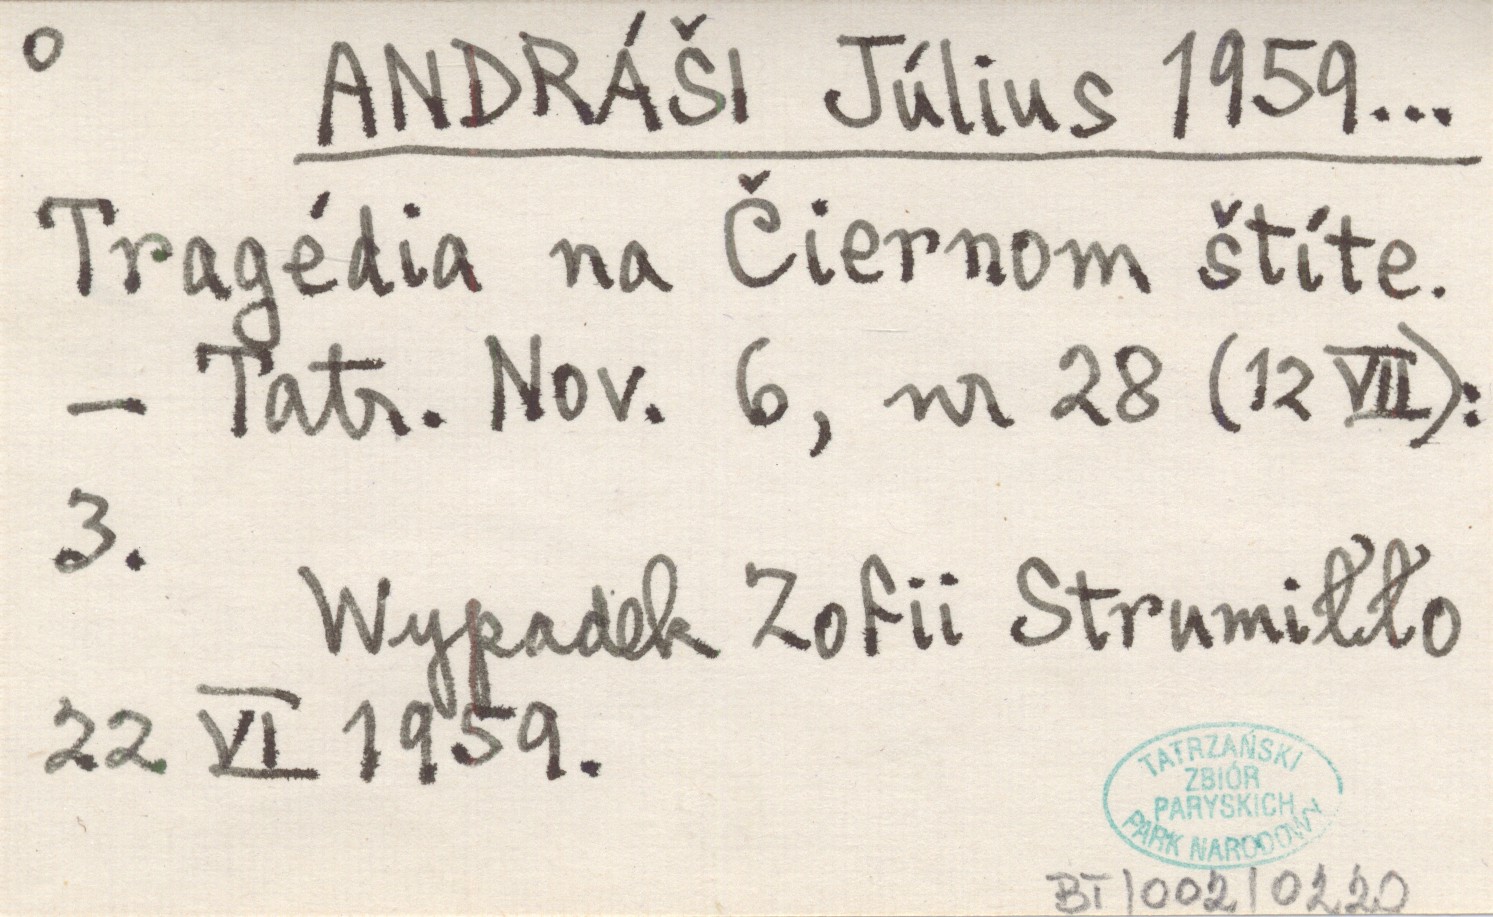 o ANDRÁŠI Július 1959...
Tragédia na Čiernom štíte.
– Tatr. Nov. 6, nr 28 (12 VII):
3.
Wypadek Zofii Strumiłło
22 VI 1959.
TATRZAŃSKI
ZBIÓR
PARYSKICH
PARK NARODOWY
BT/002/0220